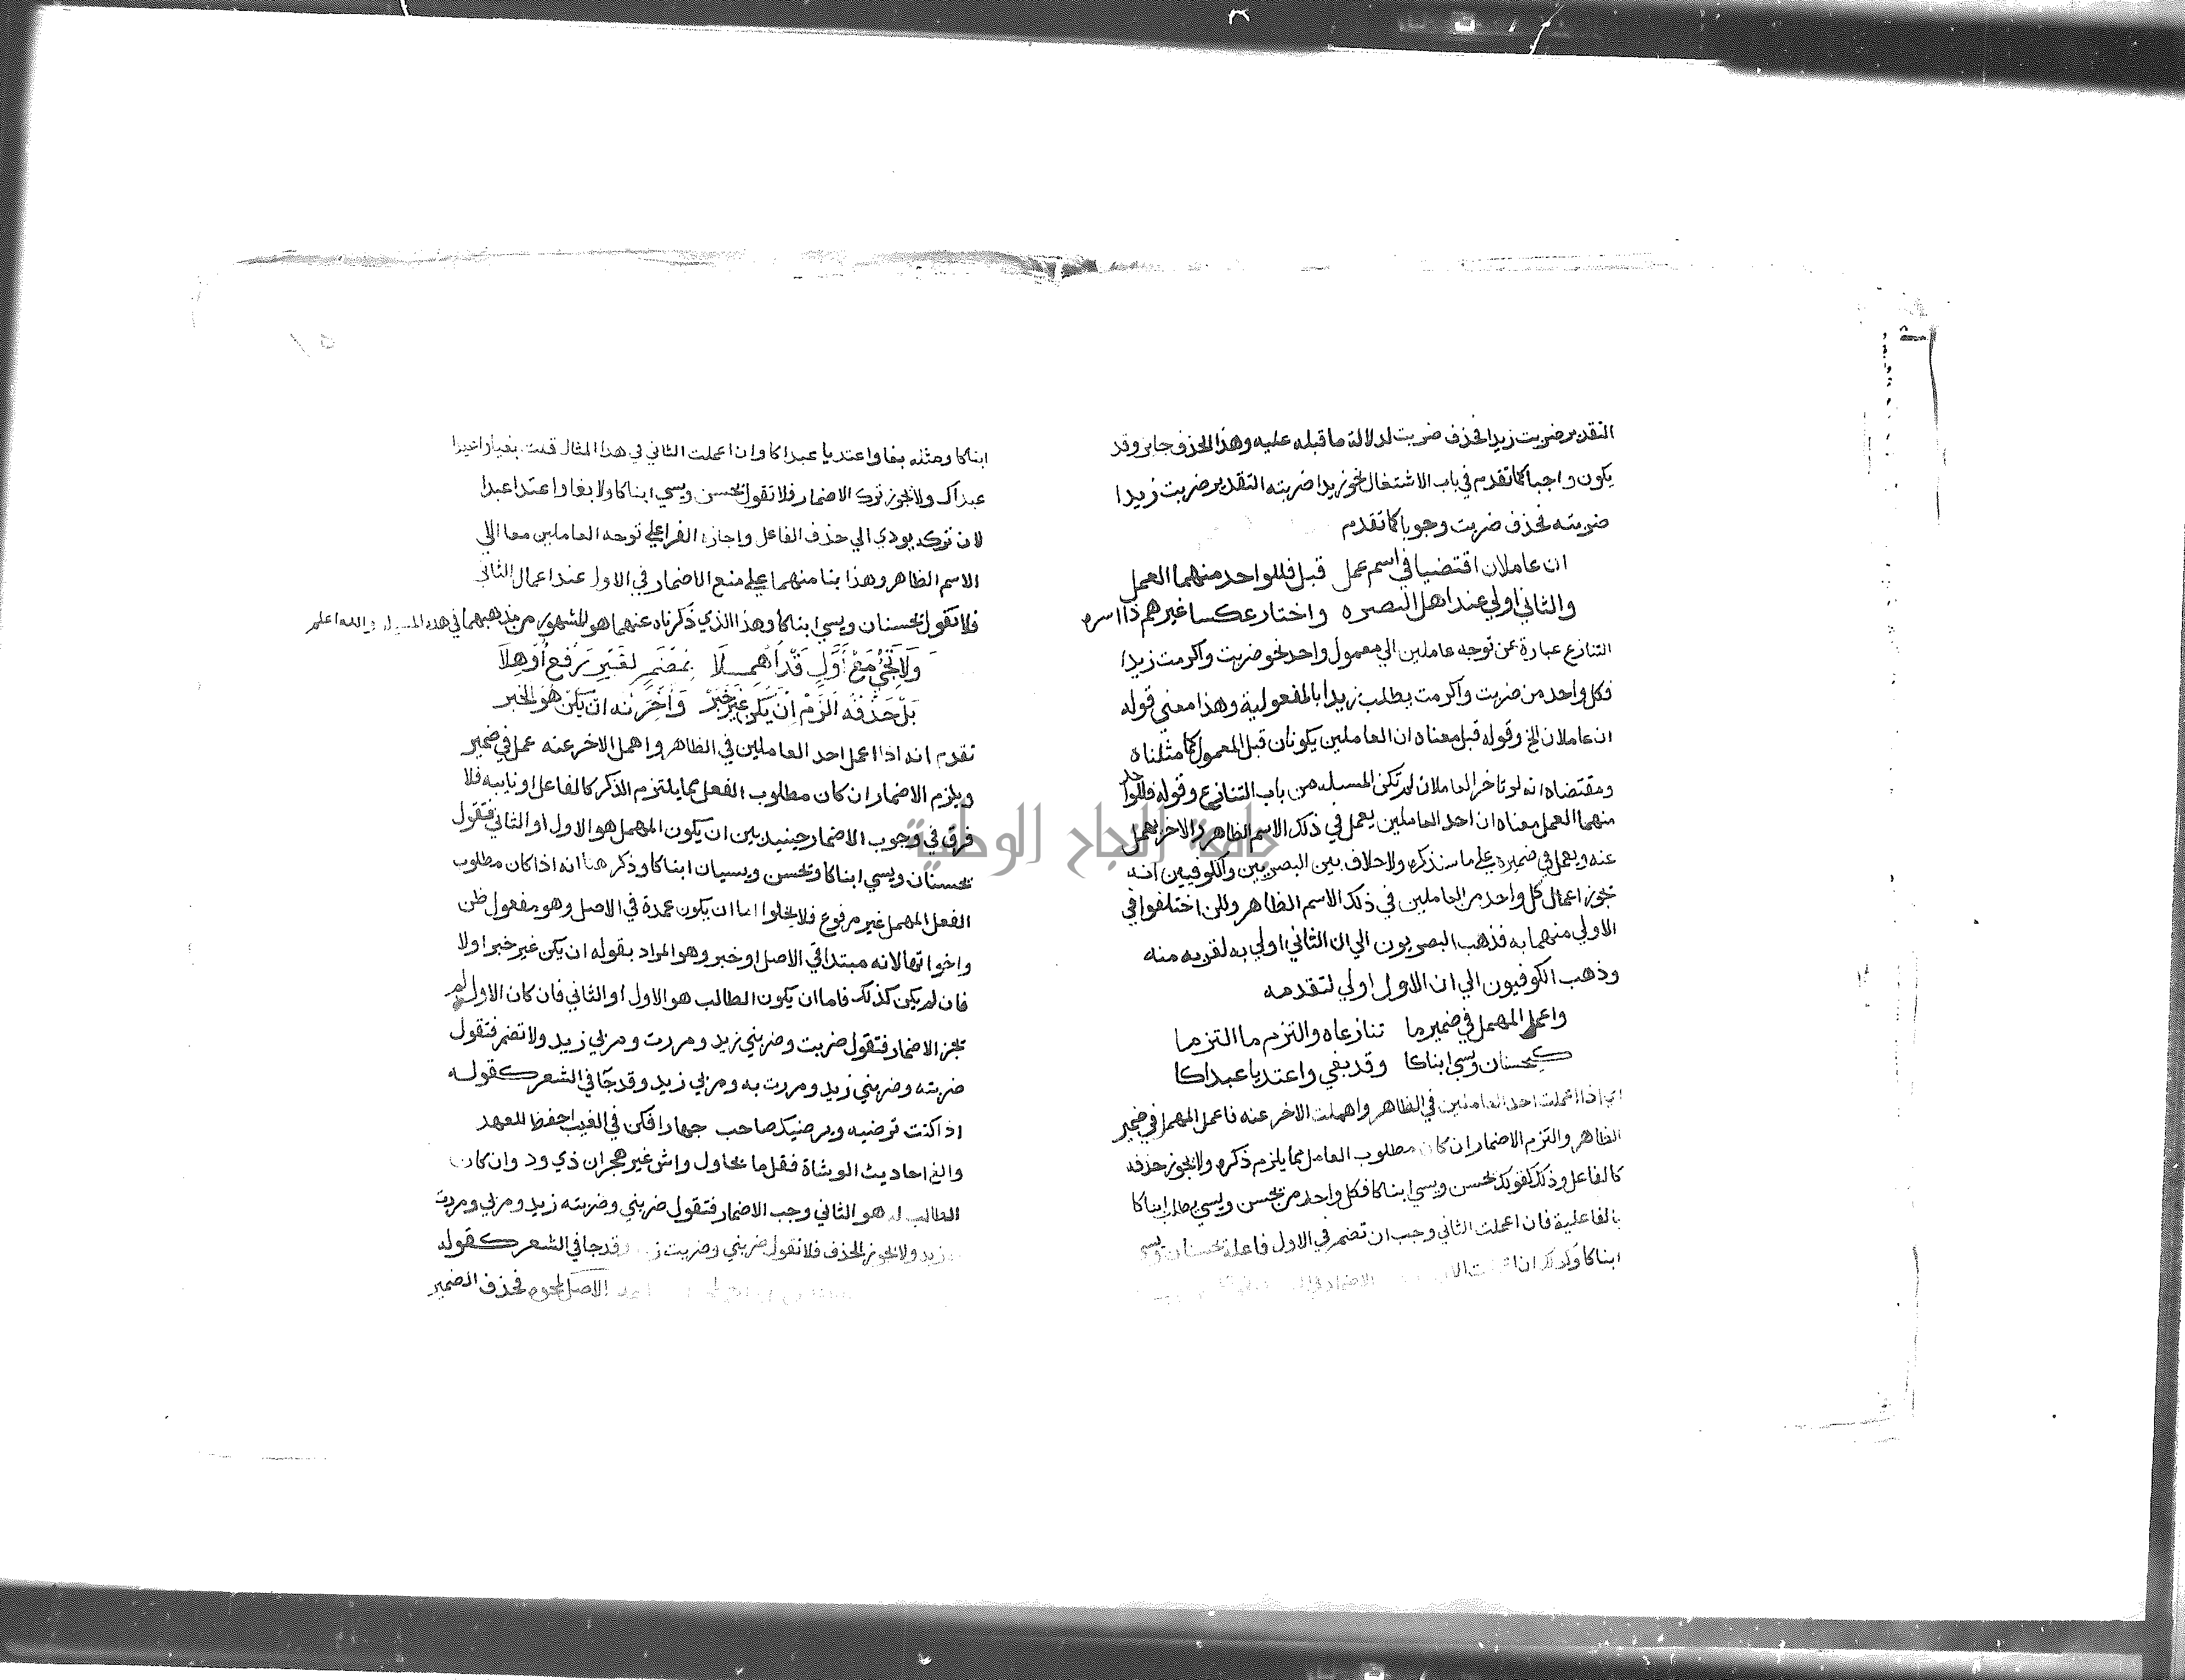 التقدير ضربت زيدا فحذف ضربت لدلالة ما قبله عليه وهذا الحذف جايز وقد
يكون واجبا كما تقدم في باب الاشتغال نحو زيدا ضربته التقدير ضربت زيدا
ضربته فحذف ضربت وجوبا كما تقدم
ان عاملان اقتضيا في اسم عمل قبل فللواحد منهما العمل
والثاني اولي عند اهل البصره واختار عكسا غيرهم ذا اسره
التنازع عبارة عن توجه عاملين الي معمول واحد نحو ضربت واكرمت زيدا
فكل واحد من ضربت واكرمت يطلب زيدا بالمفعولية وهذا معني قوله
ان عاملان الخ وقوله قبل معناه ان العاملين يكونان قبل المعمول كما مثلناه
ومقتضاه انه لو تاخر العاملان لم تكن المسيله من باب التنازع وقوله فللواحد
منهما العمل معناه ان احد العاملين يعمل في ذلك الاسم الظاهر والاخر يهمل
عنه ويعمل في ضميره علي ما سنذكره ولا خلاف بين البصريين والكوفيين انه
يجوز اعمال كل واحد من العاملين في ذلك الاسم الظاهر ولكن اختلفوا في
الاولي منهما به فذهب البصريون الي ان الثاني اولي به لقربه منه
وذهب الكوفيون الي ان الاول اولي لتقدمه
واعمل المهمل في ضمير ما تنازعاه والتزم ما التزما
كيحسنان ويسي ابناكا وقد بغي واعتديا عبداكا
اي اذا اعملت احد العاملين في الظاهر واهملت الاخر عنه فاعمل المهمل في ضمير
الظاهر والتزم الاضمار ان كان مطلوب العامل مما يلزم ذكره ولا يجوز حذفه
كالفاعل وذلك كقولك يحسن ويسي ابناكا فكل واحد من يحسن ويسي يطلب ابناكا
بالفاعلية فان اعملت الثاني وجب ان تضمر في الاول فاعله يحسنان ويسي
ابناكا وكذلك ان الاضمار في
ابناكا ومثله بغا واعتديا عبداكا وان اعملت الثاني في هذا المثال قلت بغيا واعتدا
عبداك ولا يجوز ترك الاضمار فلا تقول يحسن ويسي ابناكا ولا بغا واعتدا عبدا
لان تركه يودي الي حذف الفاعل واجازه الفرا علي توجه العاملين معا الي
الاسم الظاهر وهذا بنا منهما علي منع الاضمار في الاول عند اعمال الثاني
فلا تقول يحسنان ويسي ابناكا وهذا الذي ذكرناه عنهما هو المشهور من مذهبهما في هذه المسيله والله اعلم
وَلَا تَجِئْ مَعْ أَوَّلٍ قَدْ أُهْمِلَا بِمُضْمَرٍ لِغَيْرِ رَفْعٍ أُوهِلَا
بَلْ حَذْفَهُ الْزَمْ إِنْ يَكُنْ غَيْرَ خَبَرْ وَأَخِّرَنْهُ ان يَكُنْ هُوَ الخبر
تقدم انه اذا اعمل احد العاملين في الظاهر واهمل الاخر عنه عمل في ضمير
ويلزم الاضمار ان كان مطلوب الفعل مما يلتزم الذكر كالفاعل او نايبه فلا
فرق في وجوب الاضمار حينيذ بين ان يكون المهمل هو الاول او الثاني فتقول
يحسنان ويسي ابناكا ويحسن ويسيان ابناكا وذكر هنا انه اذا كان مطلوب
الفعل المهمل غير مرفوع فلا يخلوا اما ان يكون عمدة في الاصل وهو مفعول ظن
واخواتها لانه مبتدا في الاصل او خبر وهو المراد بقوله ان يكن غير خبر او لا
فان لم يكن كذلك فاما ان يكون الطالب هو الاول او الثاني فان كان الاول لم
يجز الاضمار فتقول ضربت وضربني زيد ومررت ومر بي زيد ولا تضمر فتقول
ضربته وضربني زيد ومررت به ومر بي زيد وقد جا في الشعر كقوله
اذ اكنت ترضيه ويرضيك صاحب جهارا فكن في الغيب احفظ للعهد
والغ احاديث الوشاة فقلما يحاول واش غير هجران ذي ود وان كان
الطالب له هو الثاني وجب الاضمار فتقول ضربني وضربته زيد ومر بي ومررت
زيد ولا يجوز الحذف فلا تقول ضربني وضربت وقد جا في الشعر كقوله
الاصل فحذف الضمير
جامعة النجاح الوطنية